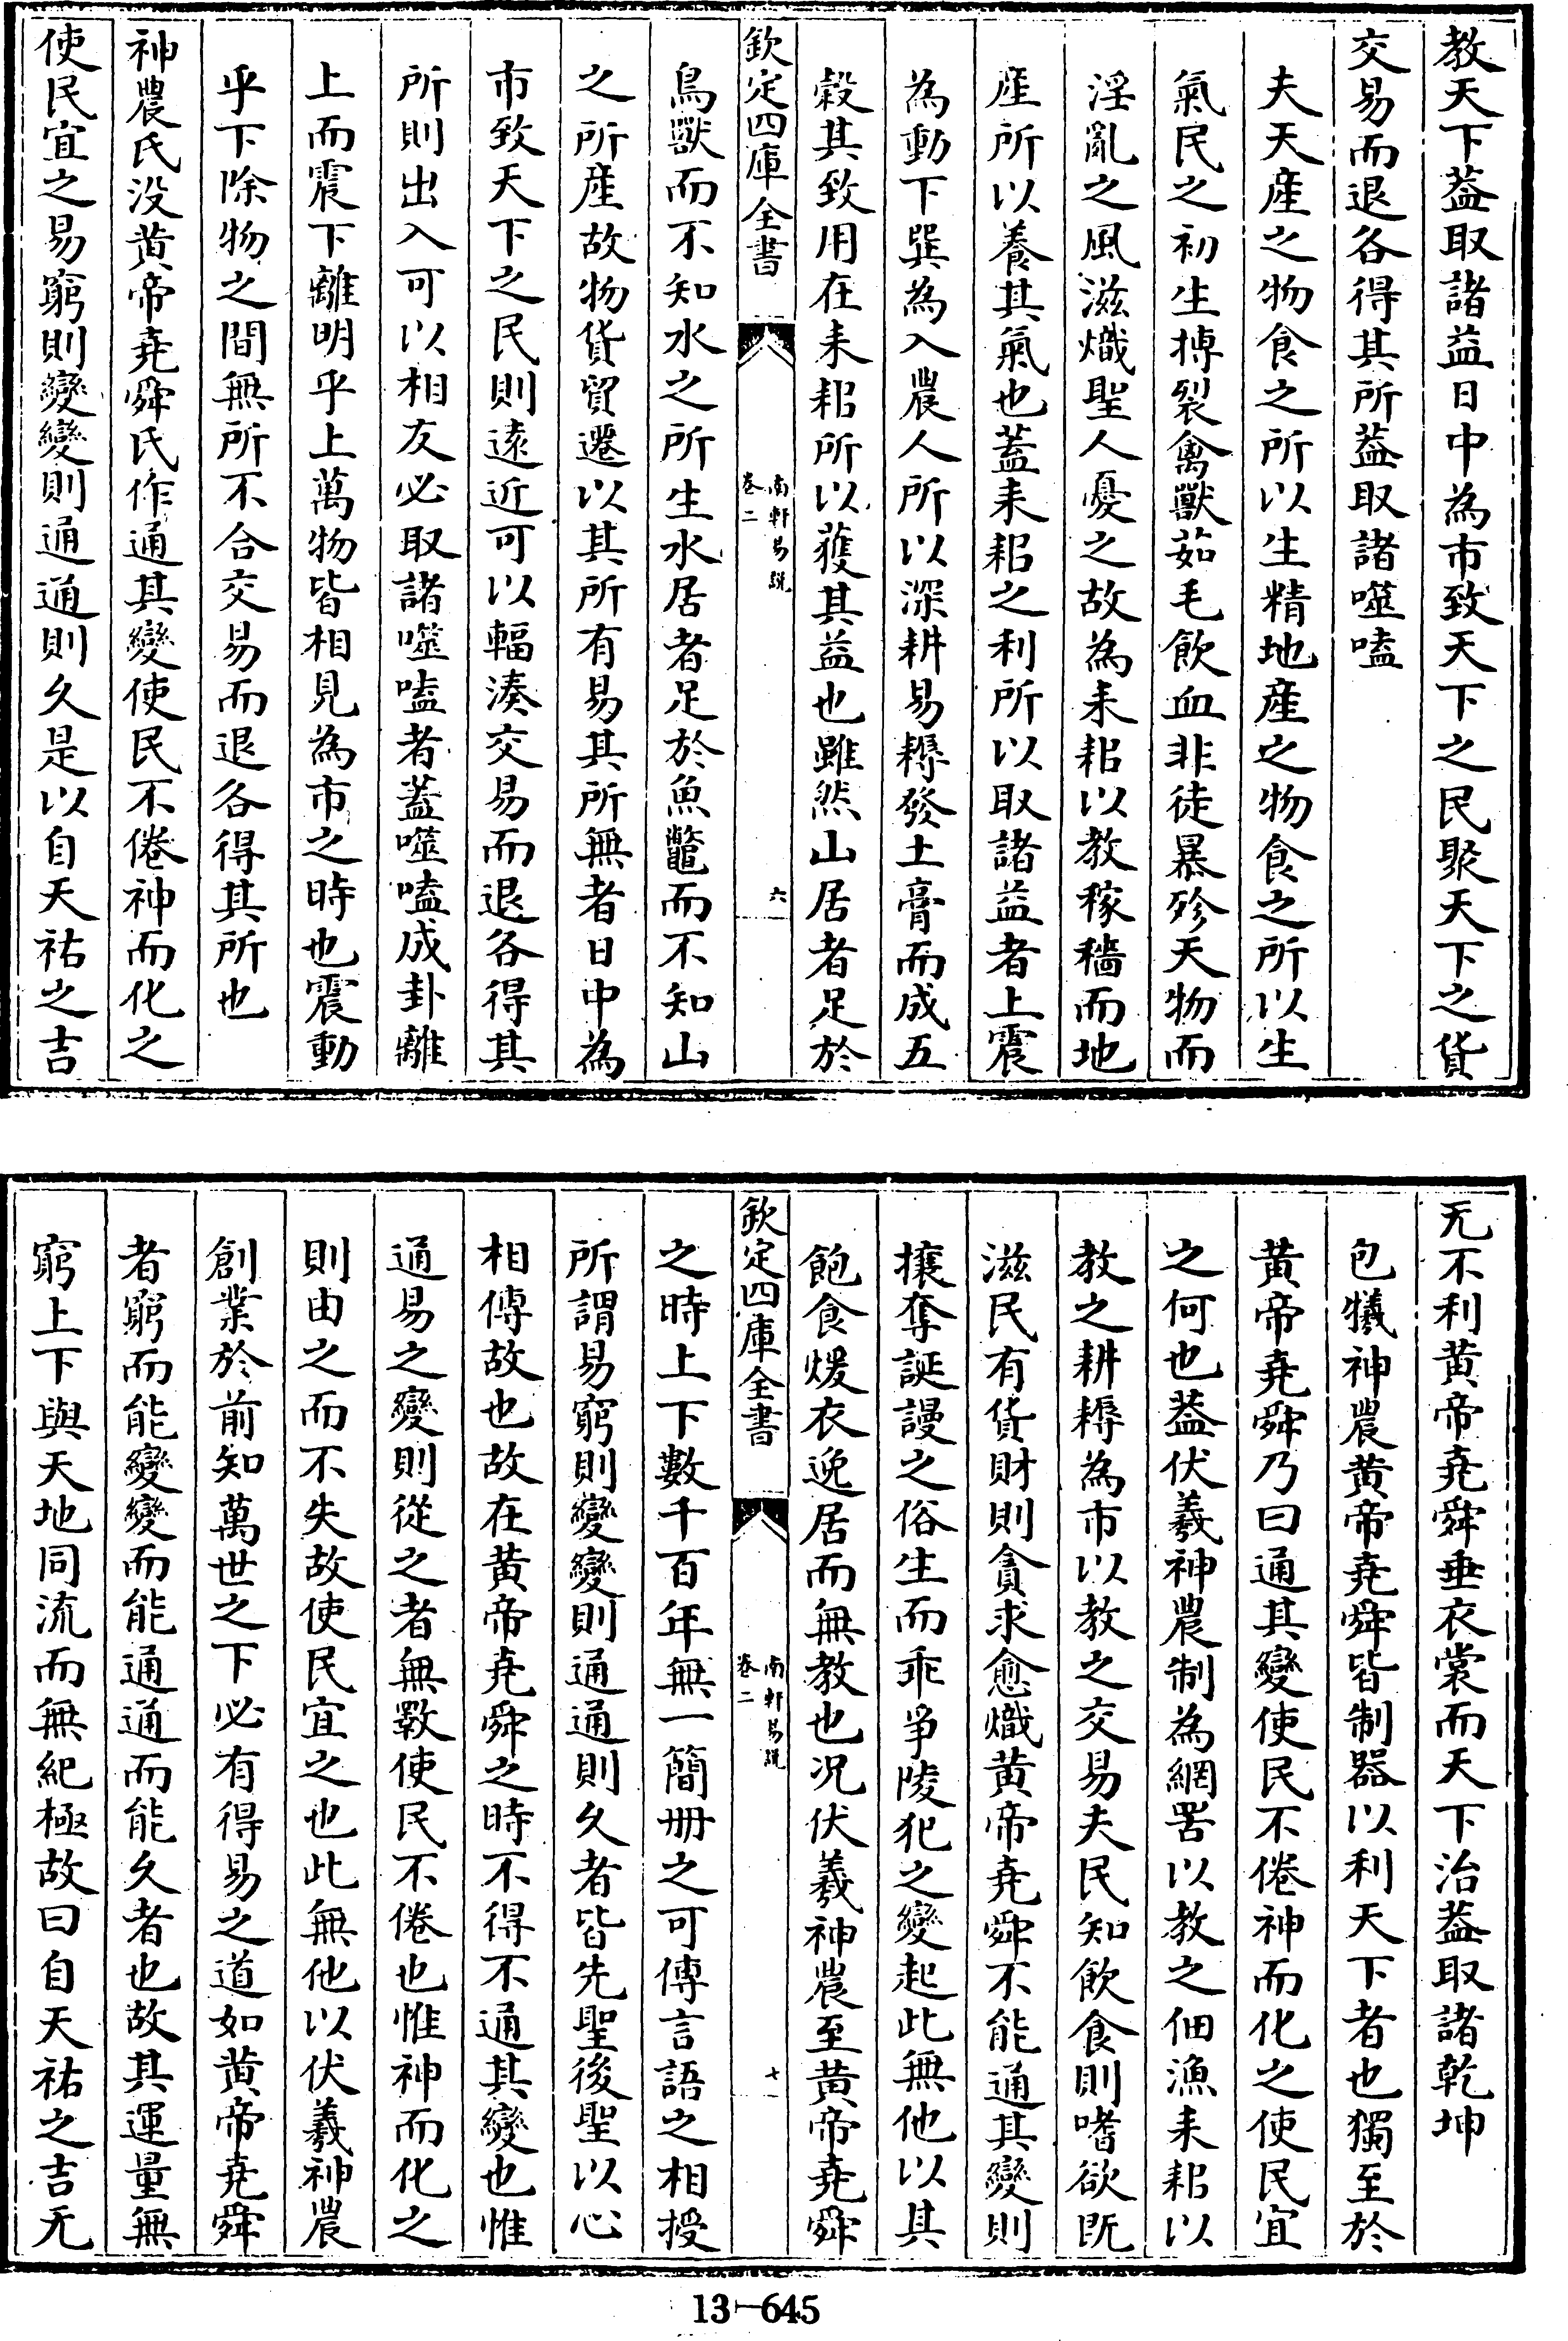 教天下葢取諸益日中為市致天下之民聚天下之貨
交易而退各得其所葢取諸噬嗑
夫天産之物食之所以生精地産之物食之所以生
氣民之初生摶裂禽獸茹毛飲血非徒暴殄天物而
淫亂之風滋熾聖人憂之故為耒耜以教稼穡而地
産所以養其氣也蓋耒耜之利所以取諸益者上震
為動下巽為入農人所以深耕易耨發土膏而成五
穀其致用在耒耜所以獲其益也雖然山居者足於
欽定四庫全書
南軒易説
卷二
六
鳥獸而不知水之所生水居者足於魚鼈而不知山
之所産故物貨貿遷以其所有易其所無者日中為
市致天下之民則遠近可以輻湊交易而退各得其
所則出入可以相友必取諸噬嗑者蓋噬嗑成卦離
上而震下離明乎上萬物皆相見為市之時也震動
乎下除物之間無所不合交易而退各得其所也
神農氏没黄帝堯舜氏作通其變使民不倦神而化之
使民宜之易窮則變變則通通則久是以自天祐之吉
无不利黄帝堯舜垂衣裳而天下治葢取諸乾坤
包犧神農黄帝堯舜皆制器以利天下者也獨至於
黄帝堯舜乃曰通其變使民不倦神而化之使民宜
之何也葢伏羲神農制為網罟以教之佃漁耒耜以
教之耕耨為市以教之交易夫民知飲食則嗜欲既
滋民有貨財則貪求愈熾黄帝堯舜不能通其變則
攘奪誕謾之俗生而乖爭陵犯之變起此無他以其
飽食煖衣逸居而無教也况伏羲神農至黄帝堯舜
欽定四庫全書
南軒易説
卷二
七
之時上下數千百年無一簡冊之可傳言語之相授
所謂易窮則變變則通通則久者皆先聖後聖以心
相傳故也故在黄帝堯舜之時不得不通其變也惟
通易之變則從之者無斁使民不倦也惟神而化之
則由之而不失故使民宜之也此無他以伏羲神農
創業於前知萬世之下必有得易之道如黄帝堯舜
者窮而能變變而能通通而能久者也故其運量無
窮上下與天地同流而無紀極故曰自天祐之吉无
13-645